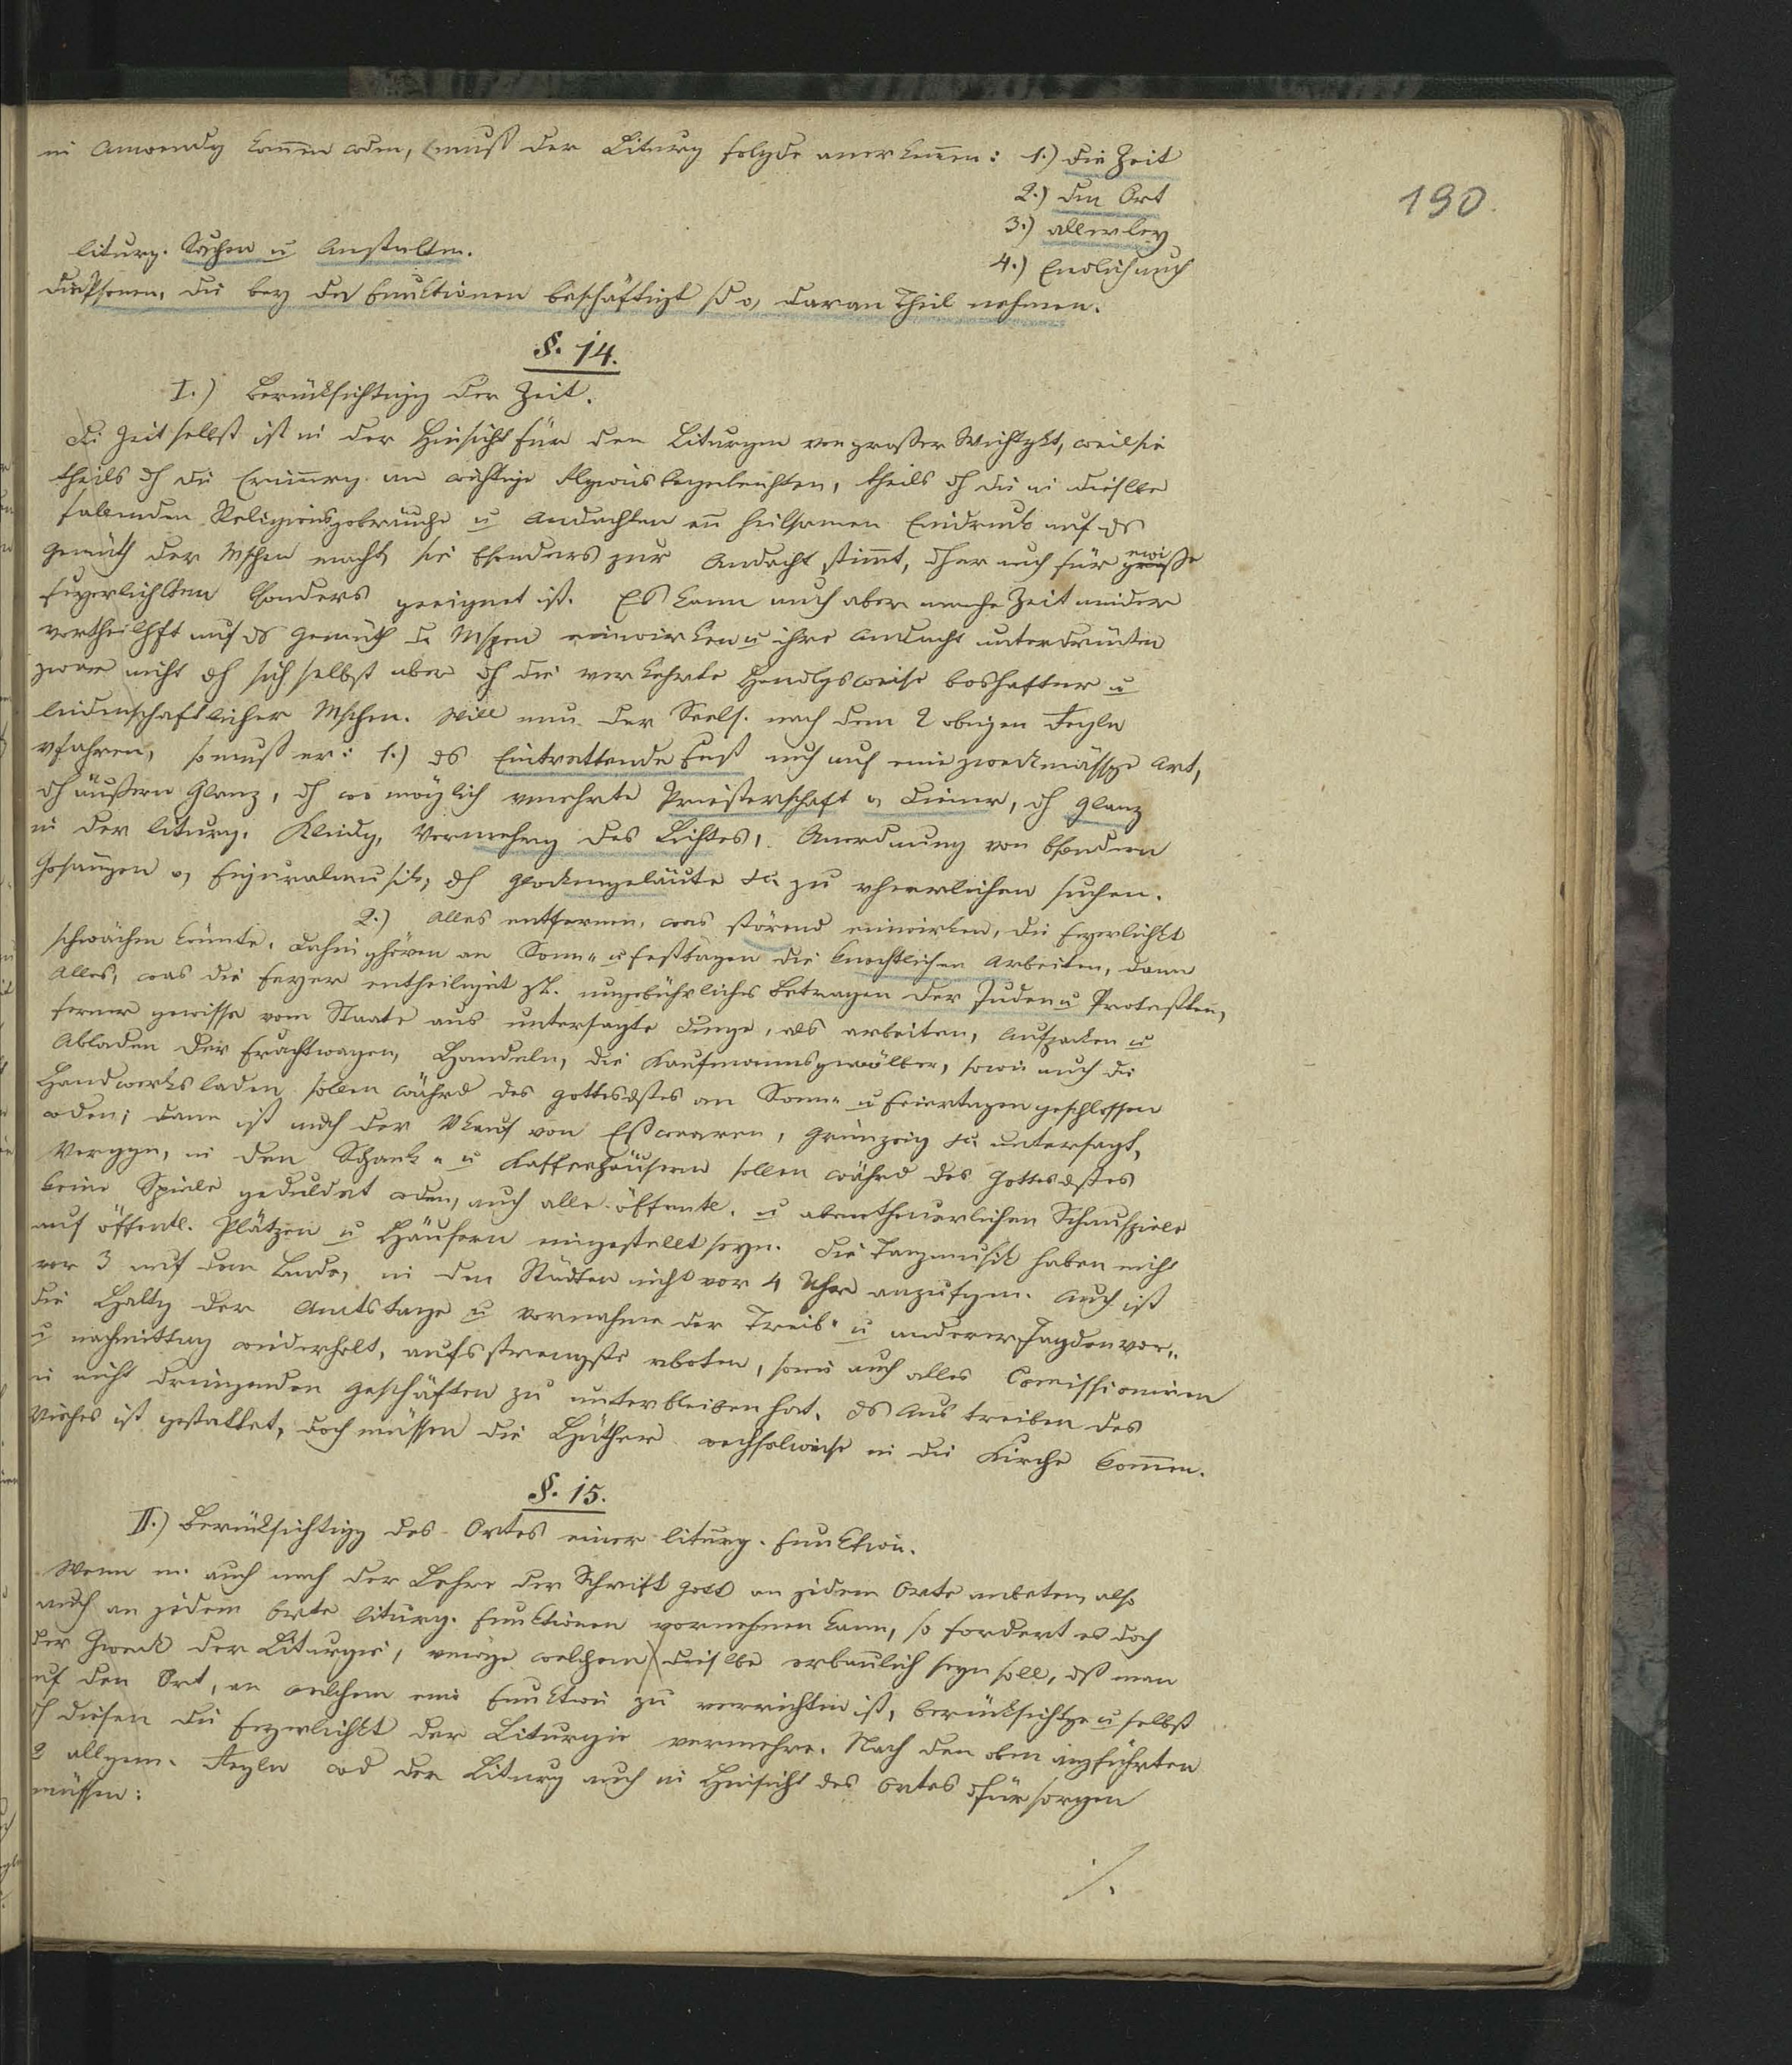 in Anwendg kommen wden, muß der Liturg folgde anerkennen: 1.) die Zeit
190.
2.) den Ort
3.) allerley
liturg. Sachen u Anstalten.
4.) Endlich auch
die Psonen, die bey den Funktionen beschäftigt sd o, daran Theil nehmen.
§. 14.
I.) Berücksichtigg der Zeit.
Die Zeit selbst ist in der Hinsicht für den Liturgen von großer Wichtgkt, weil sie
theils dh die Erinnerg an wichtige Rlgionsbegebenhten, theils dh die in dieselbe
fallenden Religionsgebräuche u Andachten enn heilsamen Eindruck auf ds
Gemüth der Mschen macht, sie bsonders zur Andacht stimmt, dher auch für gewisse
Feyerlichkten bsonders geeignet ist. Es kann auch aber manche Zeit minder
vortheilhft auf ds Gemüth d. Mschen einwirken u ihre Andacht unterdrücken
zwar nicht dh sich selbst aber dh die verkehrte Handlgsweise boshafter u
leidenschaftlicher Mschen. Will nun der Seels. nach den 2 obigen Regln
vfahren, so muß er: 1.) ds Eintrettende Fest auch auf eine zweckmässge Art,
dh äußern Glanz, dh wo möglich vmehrte Priesterschaft o, Diener, dh Glanz
in der liturg. Kleidg, Vermehrg des Lichtes, Anordnung von bsondern
Gesängen o, Figuralmusik, dh Glockengeläute &c. zu vherrlichen suchen.
2.) Alles entfernen, was störend einwirken, die Feyerlichkt
schwächen könnte. Dahin ghören an Sonn- u Festtagen die knechtlichen Arbeiten, dann
Alles, was die Feyer entheiliget z.B. ungebührliches Betragen der Juden u Protestten,
ferner gewisse vom Staate aus untersagte Dinge, als arbeiten, Aufpacken u
Abladen der Frachtwagen, Handeln, die Kaufmannsgewölber, sowie auch die
Handwerksladen sollen währd des Gottesdstes an Sonn- u Feiertagen geschlossen
wden; dann ist auch der Vkauf von Eßwaaren, Grünzeig &c. untersagt,
in den Schank- u Kaffeehäusern sollen währd des Gottesdstes
keine Spiele geduldet wden, auch alle öffentl. u abentheuerlichen Schauspiele
auf öffentl. Plätzen u Häusern eingestellt seyn. Die Tanzmusik haben nicht
vor 3 auf dem Lande, in den Städten nicht vor 4 Uhr anzufgen. Auch ist
die Haltg der Amtstage u Vornahme der Treib- u anderer Jagden vor-
u nachmittag widerholt, aufs strengste vboten, sowie auch alles Comissioniren
in nicht dringenden Geschäften zu unterbleiben hat. Ds Austreiben des
Viehes ist gestattet, doch müssen die Hüther wechselweise in die Kirche kommen.
§. 15.
II.) Berücksichtigg des Ortes einer liturg. Funktion.
Wenn m. auch nach der Lehre der Schrift Gott an jedem Orte anbeten, also
auch an jedem Orte liturg. Funktionen vornehmen kann, so fordert es doch
der Zweck der Liturgie, vmöge welchem dieselbe erbaulich seyn soll, dß man
auf den Ort, an welchem eine Funktion zu verrichten ist, berücksichtge u selbst
dh diesen die Feyerlichkt der Liturgie vermehre. Nach den oben angführten
2 allgem. Regln wd der Liturg auch in Hinsicht des Ortes dfür sorgen
müssen:
./.